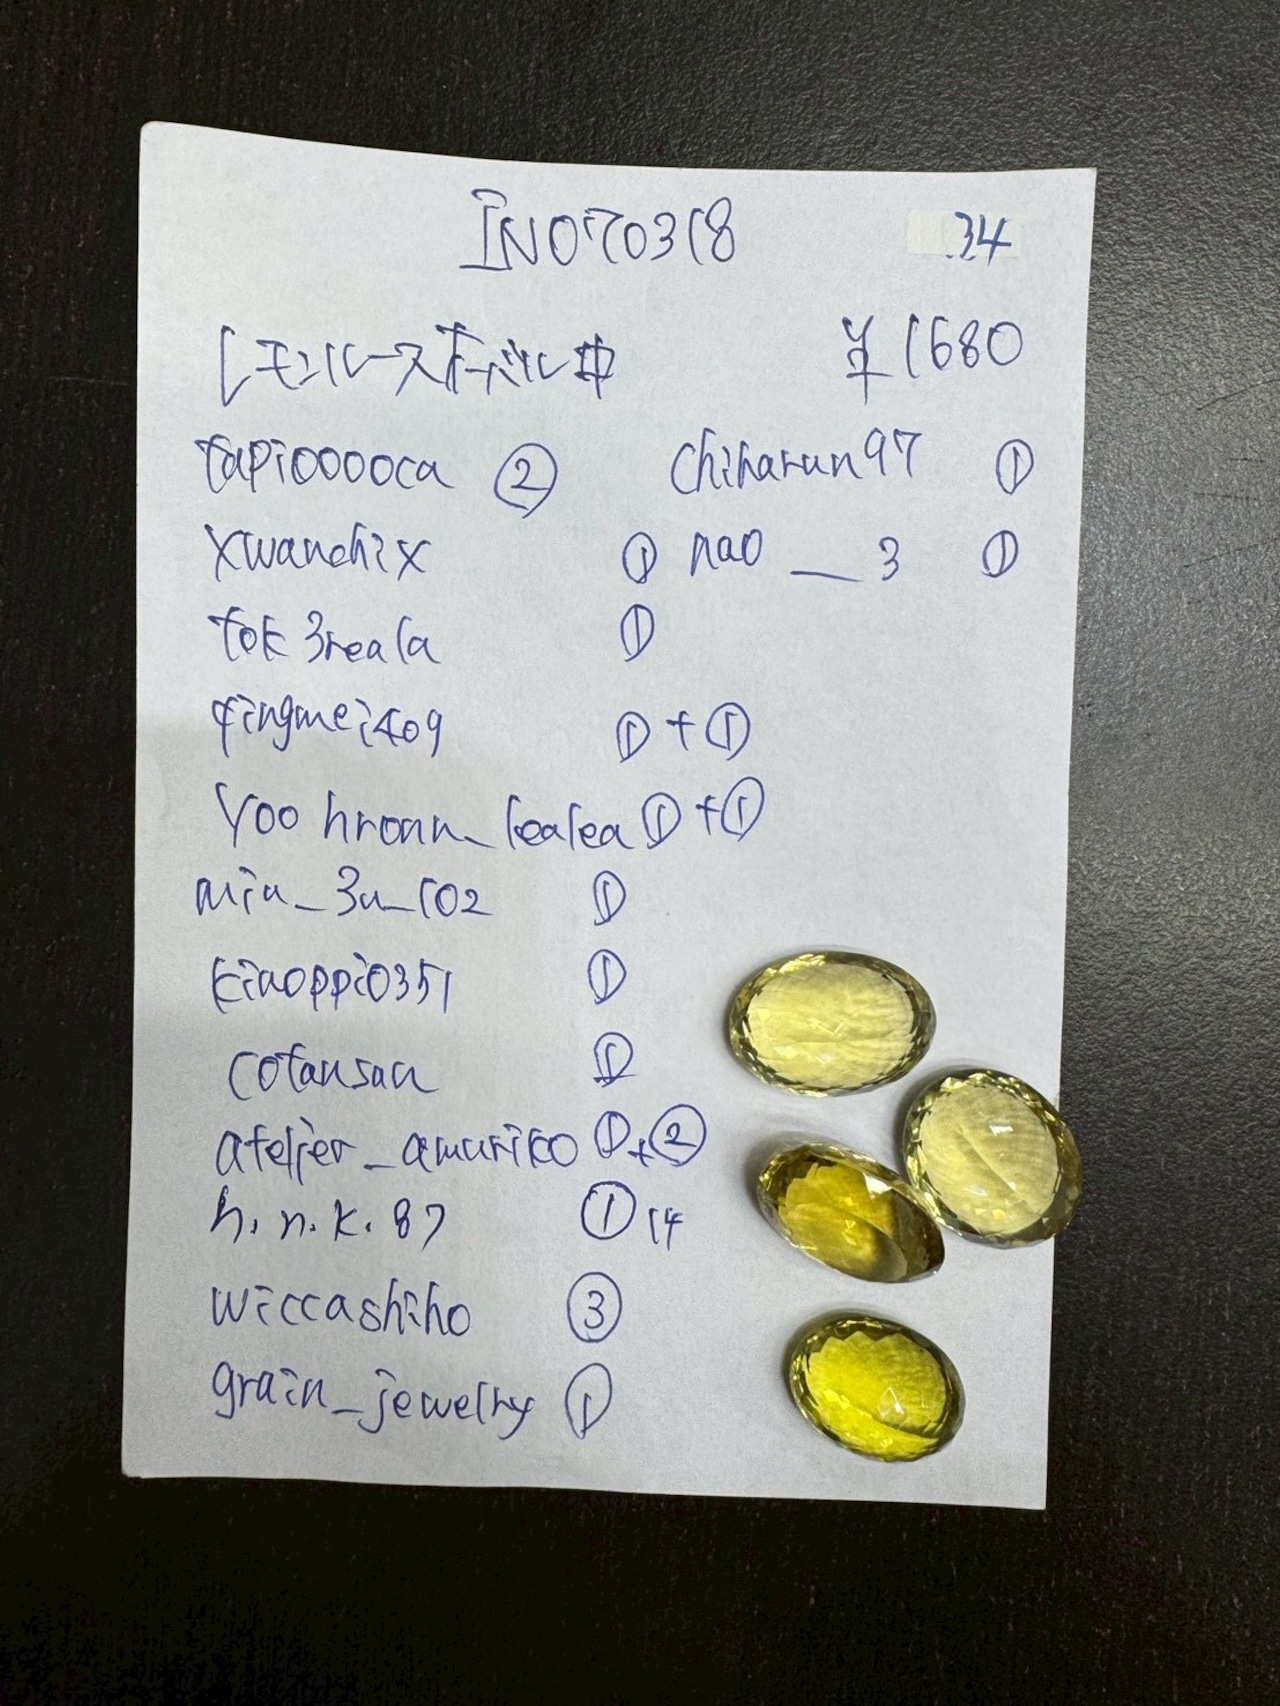 INO70318
34
レモンルースオーバル中 ¥1680
tapiooooca ② chiharun97 ①
xwanchix ① nao __ 3 ①
tok3reala ①
qingmei409 ① + ①
Yoo hroan_lealea ① + ①
miu_3u_102 ①
kinoppi0351 ①
cotansan ①
atelier_amuriko ① + ②
h.n.k.87 ① 14
wiccashiho ③
grain_jewelry ①